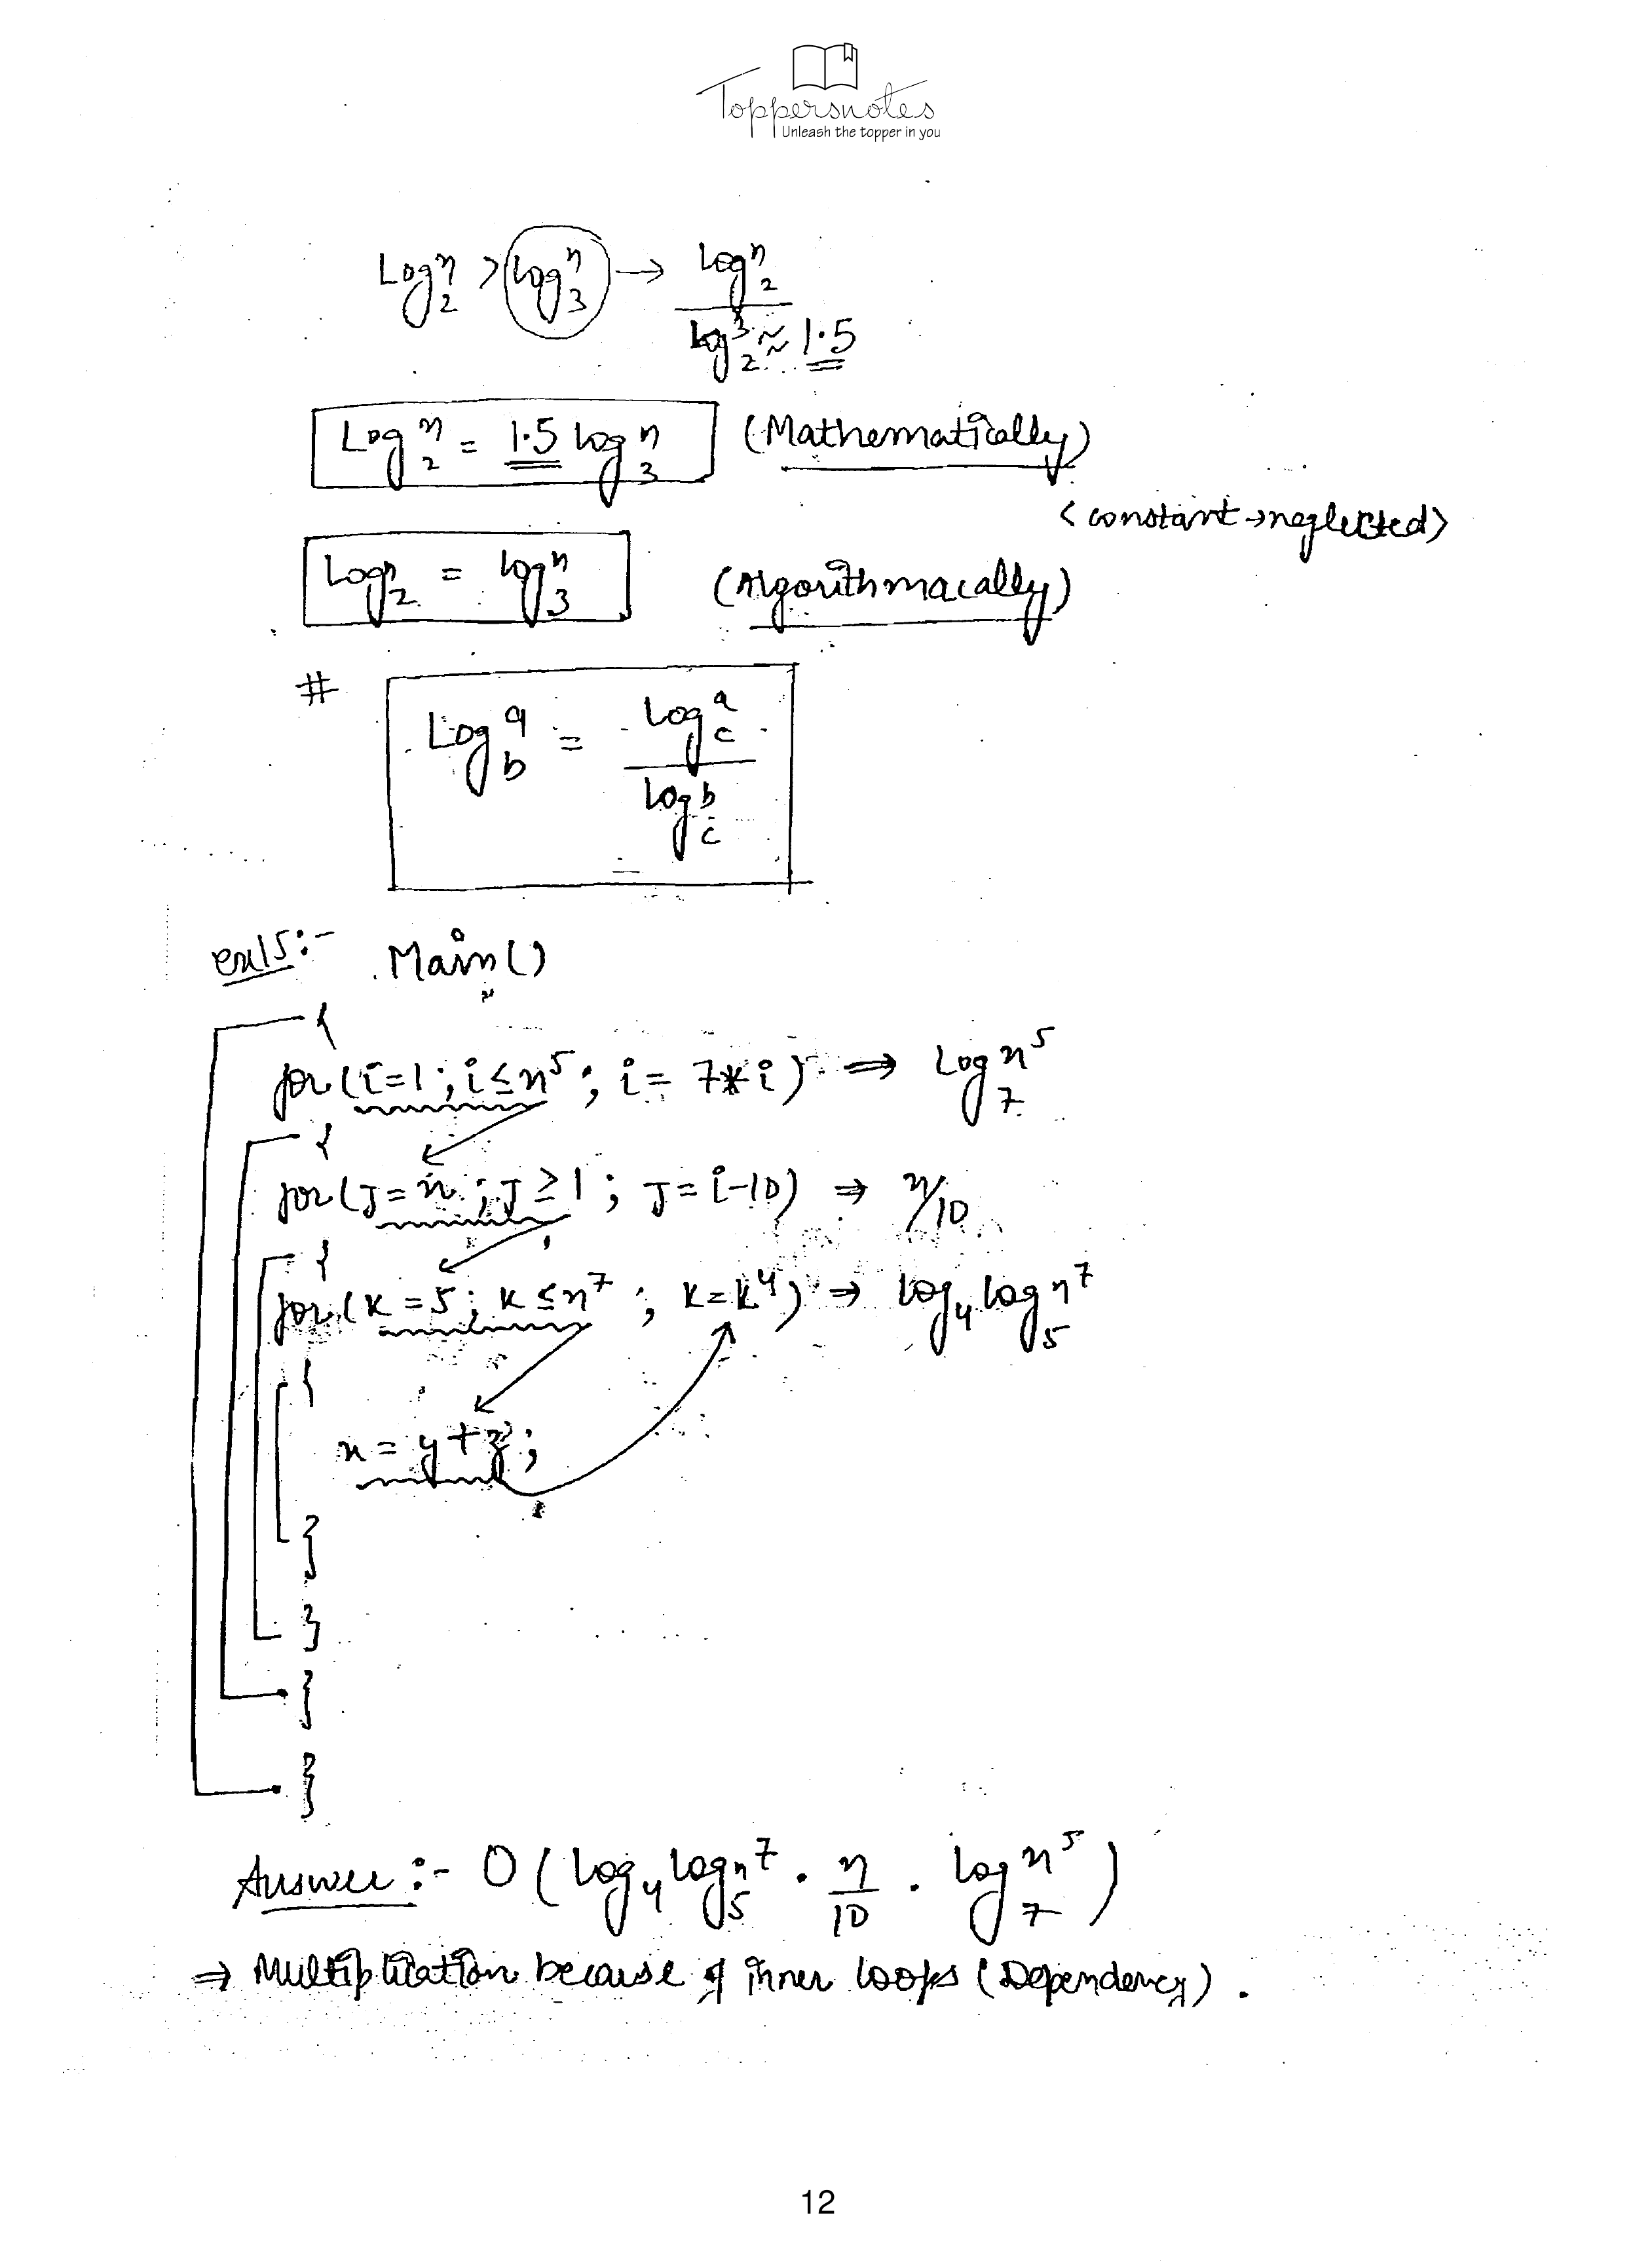 Toppersnotes
Unleash the topper in you
Log₂ⁿ > log₃ⁿ → log₂ⁿ / log₂³ ≈ 1.5
Log₂ⁿ = 1.5 log₃ⁿ (Mathematically)
<constant → neglected>
Log₂ⁿ = log₃ⁿ (Algorithmacally)
# Log_b^a = log_c^a / log_c^b
ex15:- Main()
{
for(i=1; i≤n⁵; i=7*i) ⇒ Log₇ n⁵
{
for(J=n; J≥1; J=i-10) ⇒ n/10
{
for(K=5; K≤n⁷; K=K⁴) ⇒ log₄ log₅ n⁷
{
x = y+z;
}
}
}
}
Answer:- O(log₄ log₅ n⁷ · n/10 · log₇ n⁵)
⇒ Multiplication because of inner loops (Dependency).
12